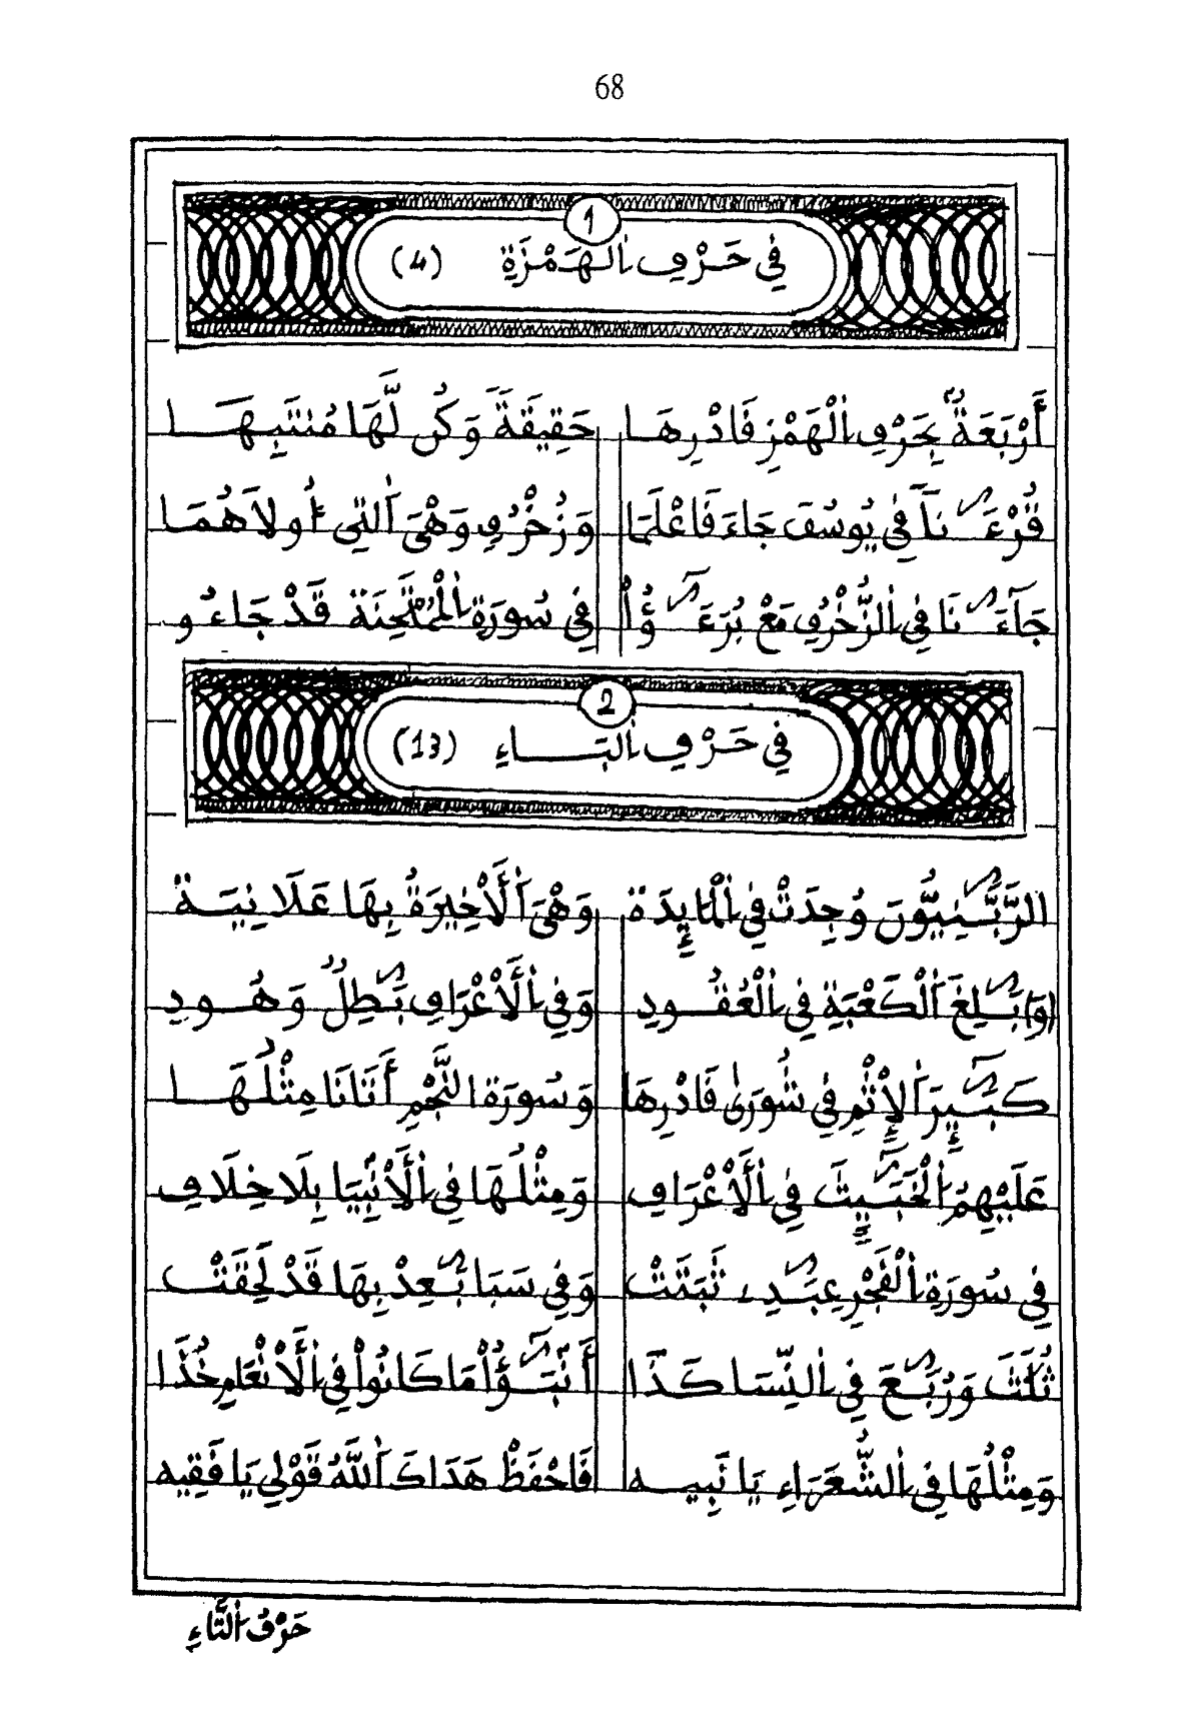 68
1
فِي حَرْفِ الْهَمْزَةِ (4)
أَرْبَعَةٌ بِحَرْفِ الْهَمْزِ فَادْرِهَا حَقِيقَةً وَكُن لَّهَا مُنتَبِهَا
قُرْءَٰنًا فِي يُوسُفَ جَاءَ فَاعْلَمَا وَزُخْرُفٍ وَهْيَ الَّتِي أُولَاهُمَا
جَآءَٰنَا فِي الزُّخْرُفِ مَعْ بُرَءَٰٓؤُاْ فِي سُورَةِ الْمُمْتَحِنَة قَدْ جَاءُو
2
فِي حَرْفِ الْبَاءِ (13)
الرَّبَّٰنِيُّونَ وُجِدَتْ فِي الْمَايِٕدَة وَهْيَ الْأَخِيرَةُ بِهَا عَلَانِيَة
(وَ) بَٰلِغَ الْكَعْبَةِ فِي الْعُقُودِ وَفِي الْأَعْرَافِ بَٰطِلٌ وَهُودِ
كَبَٰٓئِرَ الْإِثْمِ فِي شُورَىٰ فَادْرِهَا وَسُورَةُ النَّجْمِ أَتَانَا مِثْلُهَا
عَلَيْهِمُ الْخَبَٰٓئِثَ فِي الْأَعْرَافِ وَمِثْلُهَا فِي الْأَنْبِيَا بِلَا خِلَافِ
فِي سُورَةِ الْفَجْرِ عِبَٰدِے ثَبَتَتْ وَفِي سَبَا بَٰعِدْ بِهَا قَدْ لَحِقَتْ
ثُلَٰثَ وَرُبَٰعَ فِي النِّسَا كَذَا أَنْبَٰٓؤُاْ مَا كَانُواْ فِي الْأَنْعَامِ خُذَا
وَمِثْلُهَا فِي الشُّعَرَاءِ يَا نَبِيه فَاحْفَظْ هَدَاكَ اللَّهُ قَوْلِي يَا فَقِيه
حَرْفُ التَّاءِ